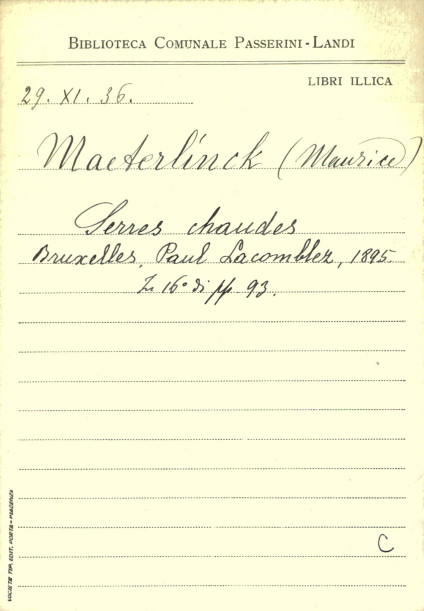 BIBLIOTECA COMUNALE PASSERINI-LANDI
LIBRI ILLICA
29. XI. 36.
Maeterlinck (Maurice)
Serres chaudes
Bruxelles, Paul Lacomblez, 1895.
In 16° di pp 93.
C
SOCIETÀ TIP. EDIT. PORTA - PIACENZA